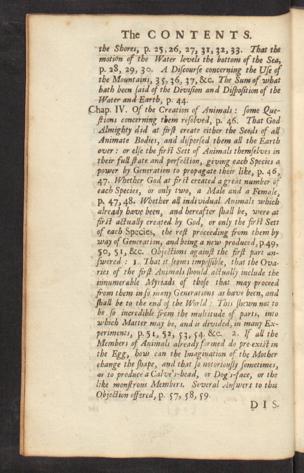 The CONTENTS.
the Shores, p. 25, 26, 27, 31, 32, 33. That the
motion of the Water levels the bottom of the Sea,
p. 28, 29, 30. A Discourse concerning the Use of
the Mountains, 35, 36, 37, &c. The Sum of what
hath been said of the Division and Disposition of the
Water and Earth, p. 44.
Chap. IV. Of the Creation of Animals: some Que-
stions concerning them resolved, p. 46. That God
Almighty did at first create either the Seeds of all
Animate Bodies, and dispersed them all the Earth
over: or else the first Sett of Animals themselves in
their full state and perfection, giving each Species a
power by Generation to propagate their like, p. 46,
47. Whether God at first created a great number of
each Species, or only two, a Male and a Female,
p. 47, 48. Whether all individual Animals which
already have been, and hereafter shall be, were at
first actually created by God, or only the first Sett
of each Species, the rest proceeding from them by
way of Generation, and being a new produced, p.49,
50, 51, &c. Objections against the first part an-
swered: 1. That it seems impossible, that the Ova-
ries of the first Animals should actually include the
innumerable Myriads of those that may proceed
from them in so many Generations as have been, and
shall be to the end of the World: This shewn not to
be so incredible from the multitude of parts, into
which Matter may be, and is divided, in many Ex-
periments, p. 51, 52, 53, 54. &c. 2. If all the
Members of Animals already formed do pre-exist in
the Egg, how can the Imagination of the Mother
change the shape, and that so notoriously sometimes,
or to produce a Calve's-head, or Dog's-face, or the
like monstrous Members. Several Answers to this
Objection offered, p. 57, 58, 59.
DIS-